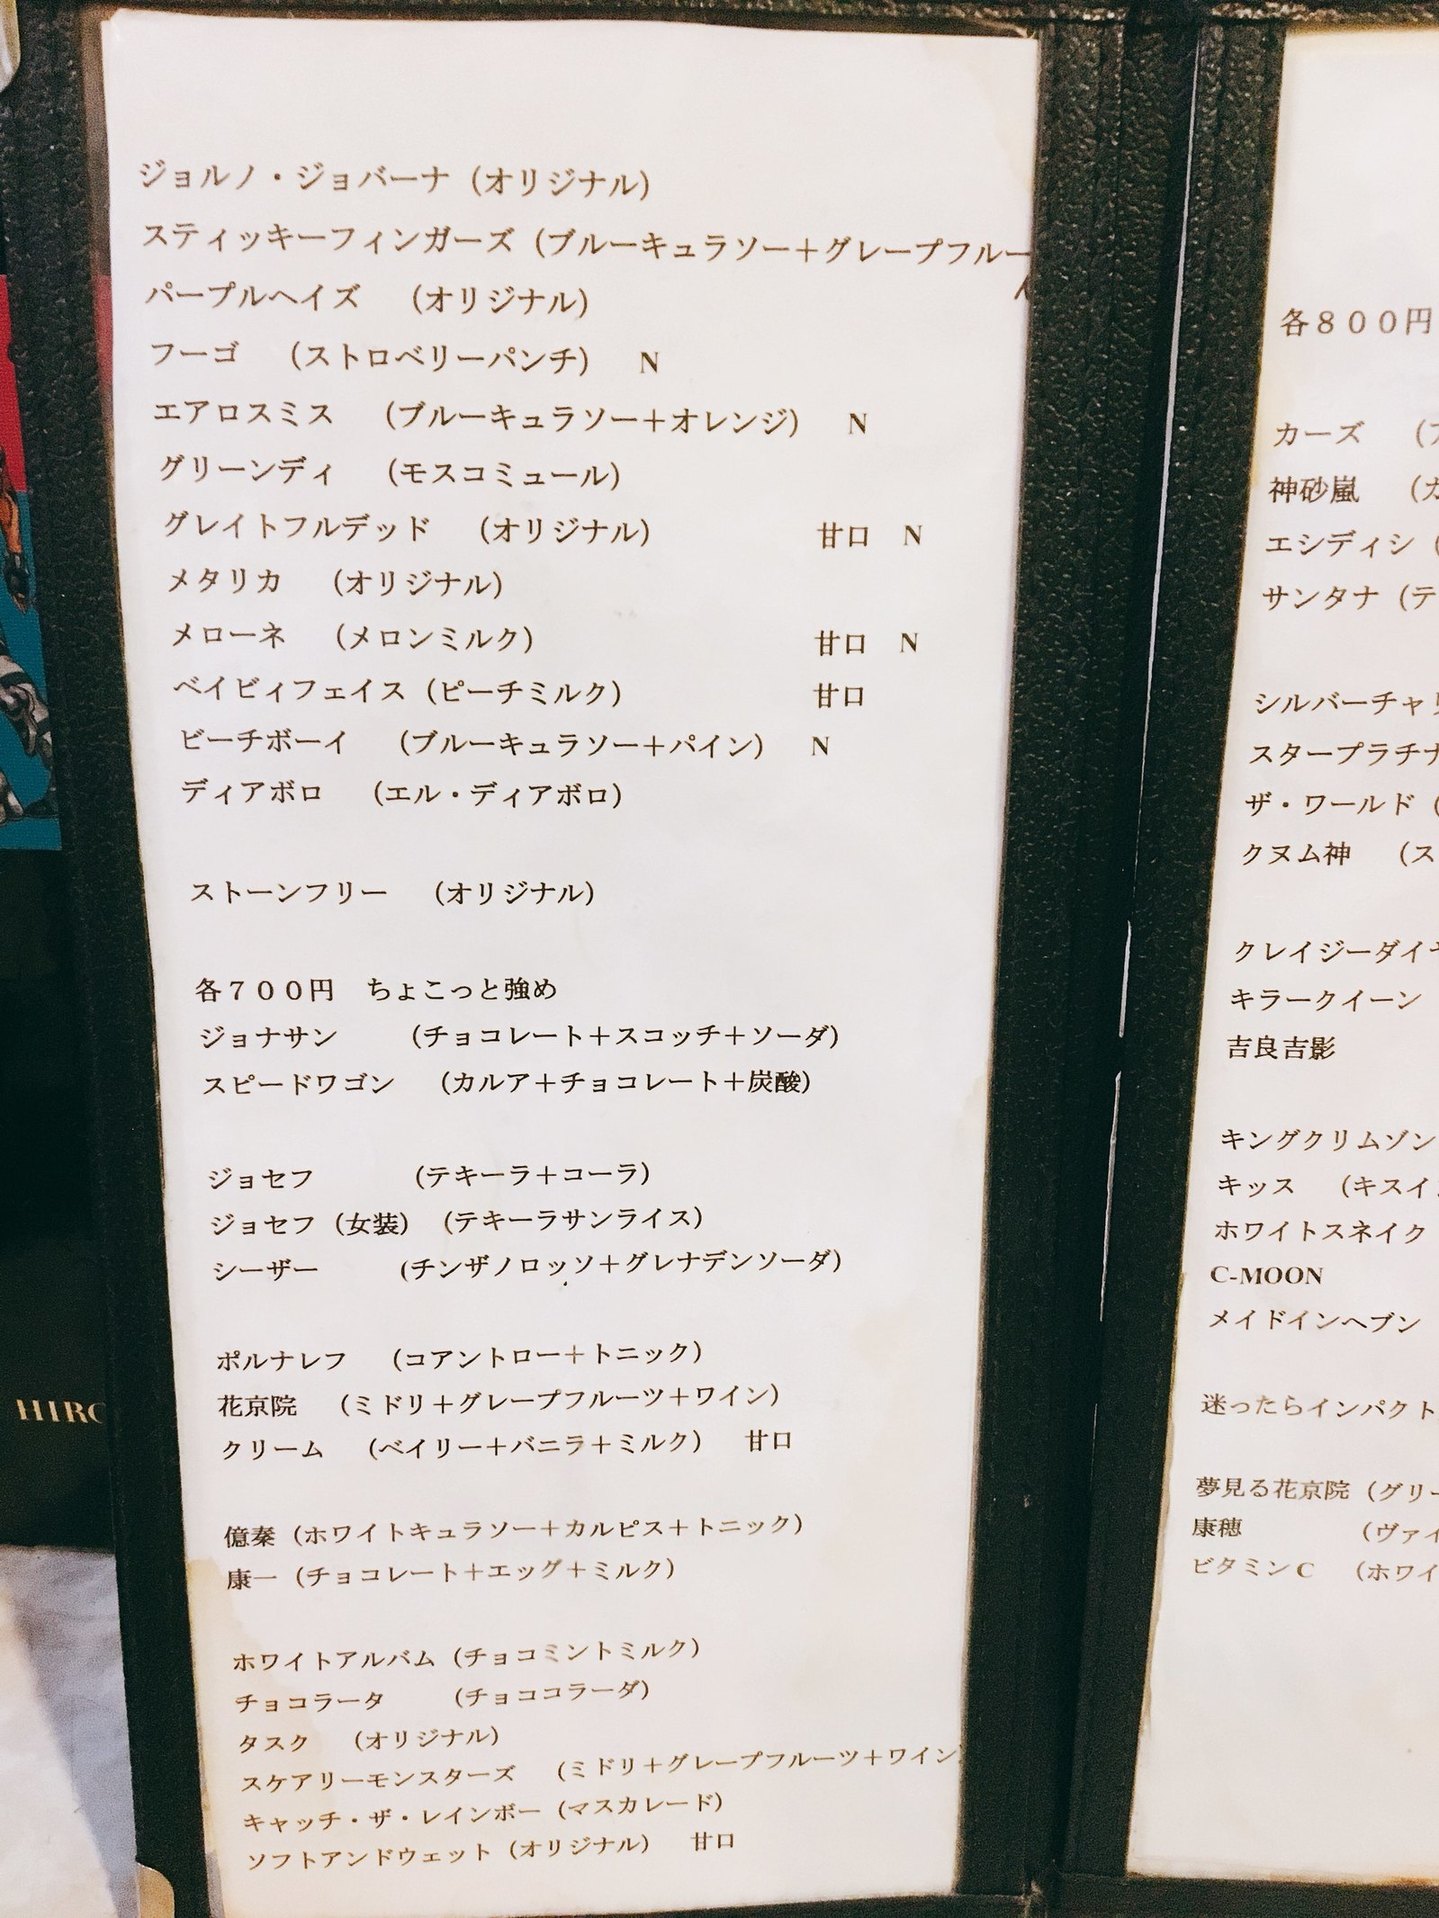 ジョルノ・ジョバーナ（オリジナル）
スティッキーフィンガーズ（ブルーキュラソー＋グレープフルー
パープルヘイズ　（オリジナル）
フーゴ　（ストロベリーパンチ）　N
エアロスミス　（ブルーキュラソー＋オレンジ）　N
グリーンディ　（モスコミュール）
グレイトフルデッド　（オリジナル）　甘口　N
メタリカ　（オリジナル）
メローネ　（メロンミルク）　甘口　N
ベイビィフェイス（ピーチミルク）　甘口
ビーチボーイ　（ブルーキュラソー＋パイン）　N
ディアボロ　（エル・ディアボロ）
ストーンフリー　（オリジナル）
各７００円　ちょこっと強め
ジョナサン　（チョコレート＋スコッチ＋ソーダ）
スピードワゴン　（カルア＋チョコレート＋炭酸）
ジョセフ　（テキーラ＋コーラ）
ジョセフ（女装）　（テキーラサンライス）
シーザー　（チンザノロッソ＋グレナデンソーダ）
ポルナレフ　（コアントロー＋トニック）
花京院　（ミドリ＋グレープフルーツ＋ワイン）
クリーム　（ベイリー＋バニラ＋ミルク）　甘口
億秦（ホワイトキュラソー＋カルピス＋トニック）
康一（チョコレート＋エッグ＋ミルク）
ホワイトアルバム（チョコミントミルク）
チョコラータ　（チョココラーダ）
タスク　（オリジナル）
スケアリーモンスターズ　（ミドリ＋グレープフルーツ＋ワイン）
キャッチ・ザ・レインボー（マスカレード）
ソフトアンドウェット（オリジナル）　甘口
各８００円
カーズ　（ア
神砂嵐　（カ
エシディシ（
サンタナ（テ
シルバーチャリ
スタープラチナ
ザ・ワールド（
クヌム神　（ス
クレイジーダイヤ
キラークイーン
吉良吉影
キングクリムゾン
キッス　（キスイ
ホワイトスネイク
C-MOON
メイドインヘブン
迷ったらインパクト
夢見る花京院（グリー
康穂　（ヴァイ
ビタミンC　（ホワイ
HIRO